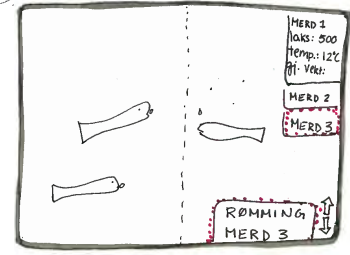 MERD 1
laks: 500
temp.: 12°C
gj. vekt:
MERD 2
MERD 3
RØMMING
MERD 3